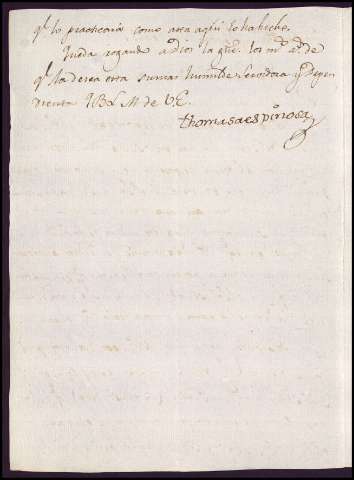 qe lo practicara como asta aqui lo ha hecho
queda rogando a dios la gue. los ms. as. de
qe la desea esta su mas humilde servidora y depen
dienta QBLM de VE.
thomasa espinosa